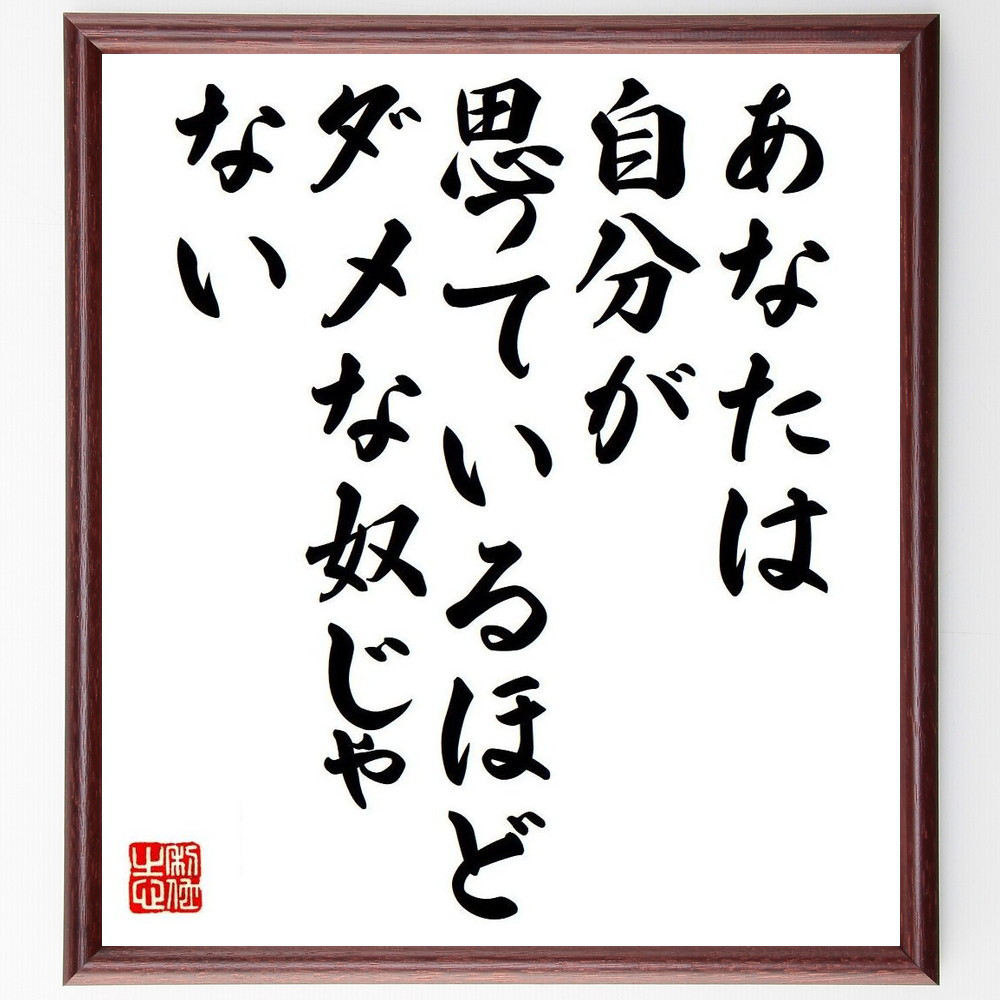 あなたは
自分が
思っているほど
ダメな奴じゃ
ない